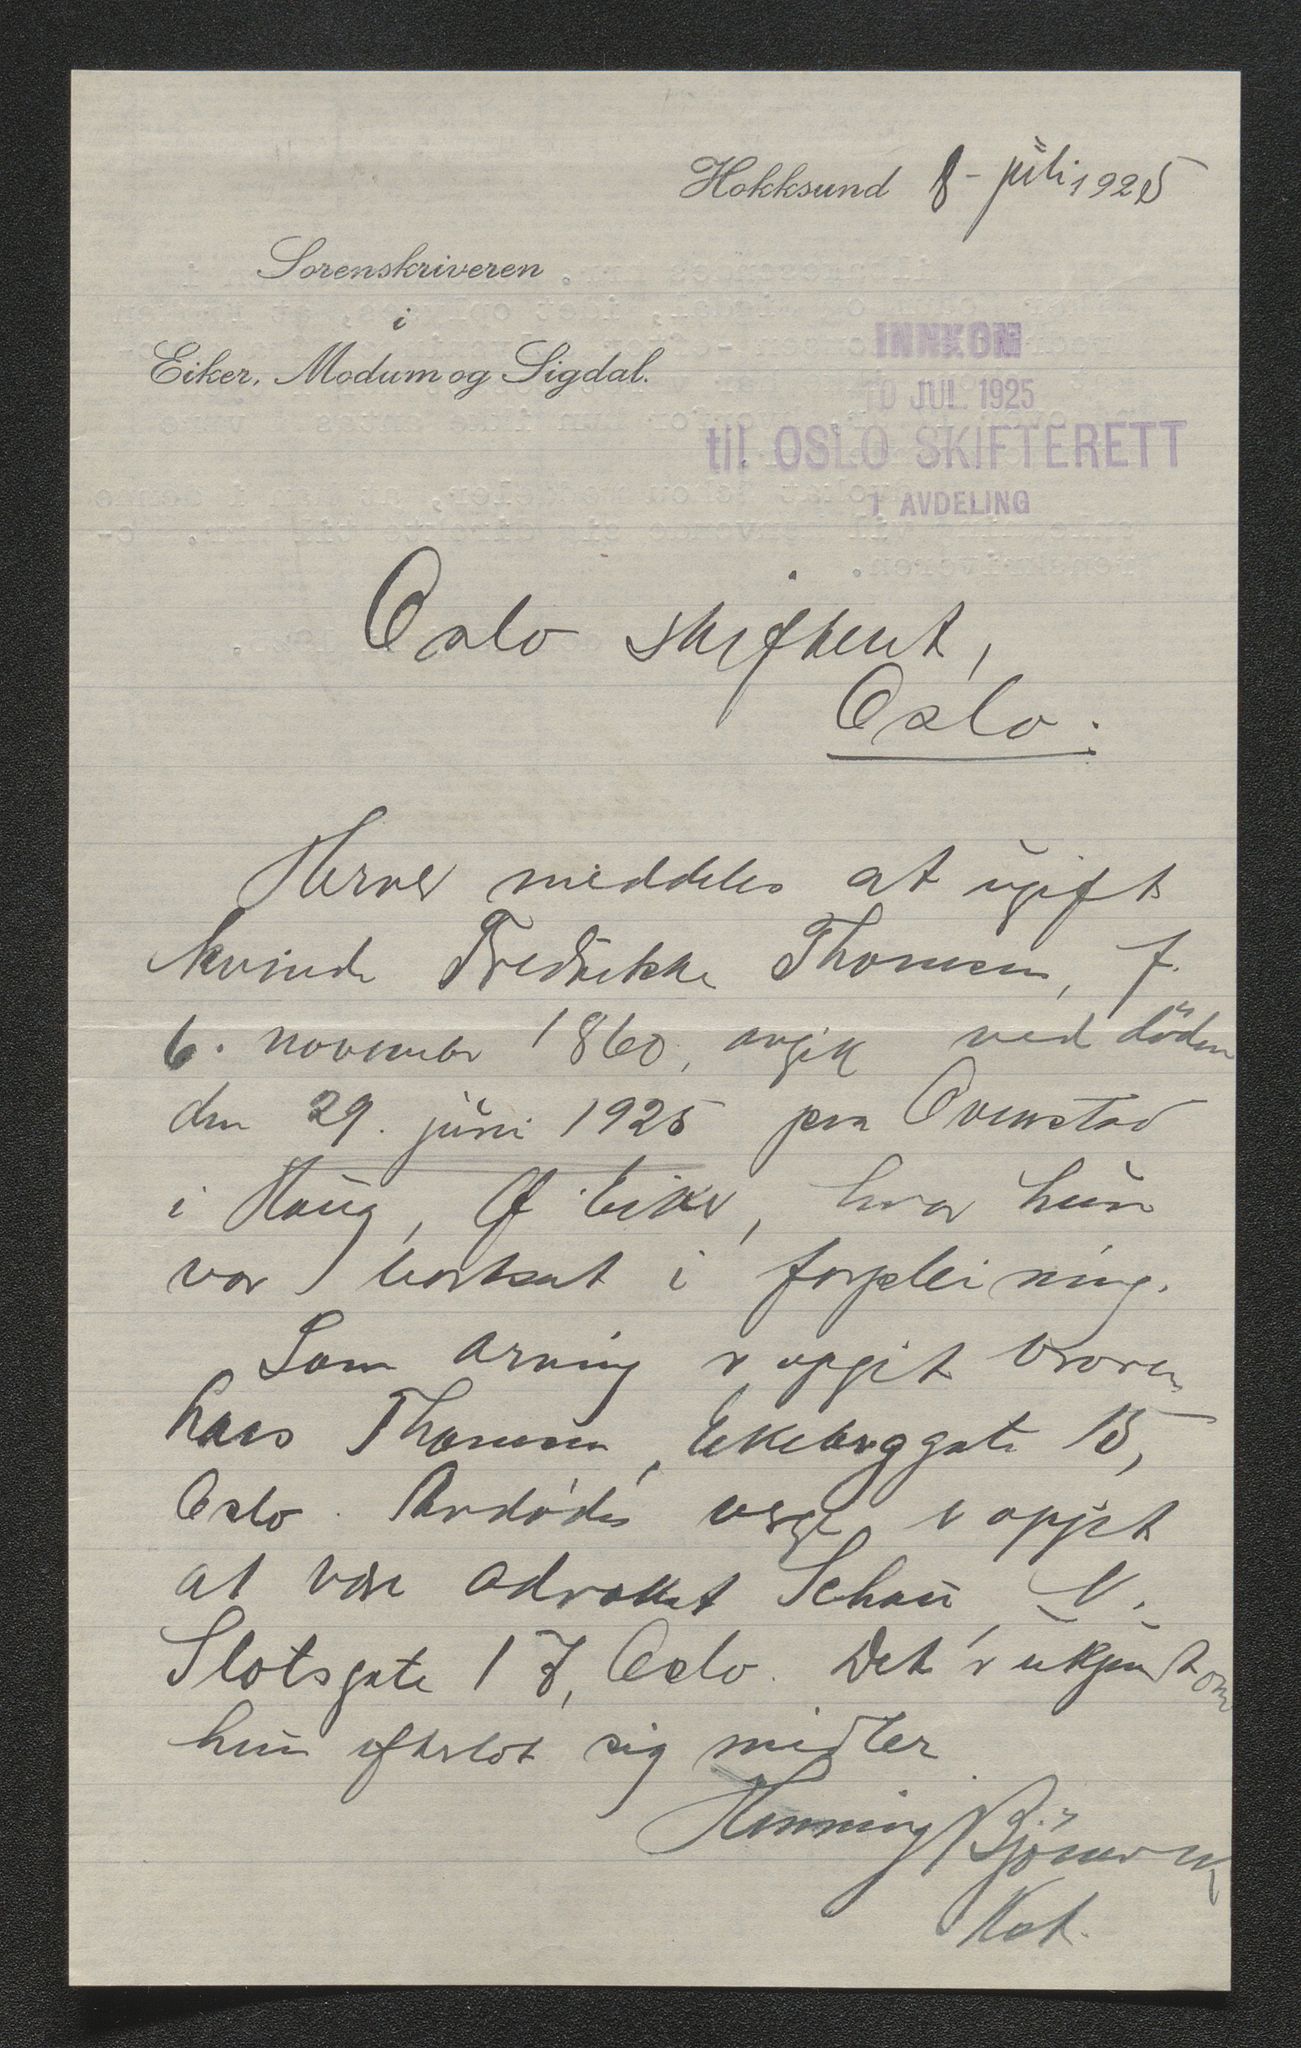 Hokksund 8 - juli 1925
Sorenskriveren
i
Eiker, Modum og Sigdal.
INNKOM
10 JUL. 1925
til OSLO SKIFTERETT
1 AVDELING
Oslo skifterett,
Oslo.
Herved meddeles at ugift
kvinde Fredrikke Thomsen, f.
6. november 1860, avgik ved døden
den 29. juni 1925 paa Ovenstad
i Haug, Ø Eiker, hvor hun
var bortsat i forpleining.
Som arving er opgit broren
Lars Thomsen, Ekeberggate 15,
Oslo. Avdødes verge er opgit
at være advokat Schau, N.
Slotsgate 17, Oslo. Det er ukjendt om
hun efterlot sig midler
Henning